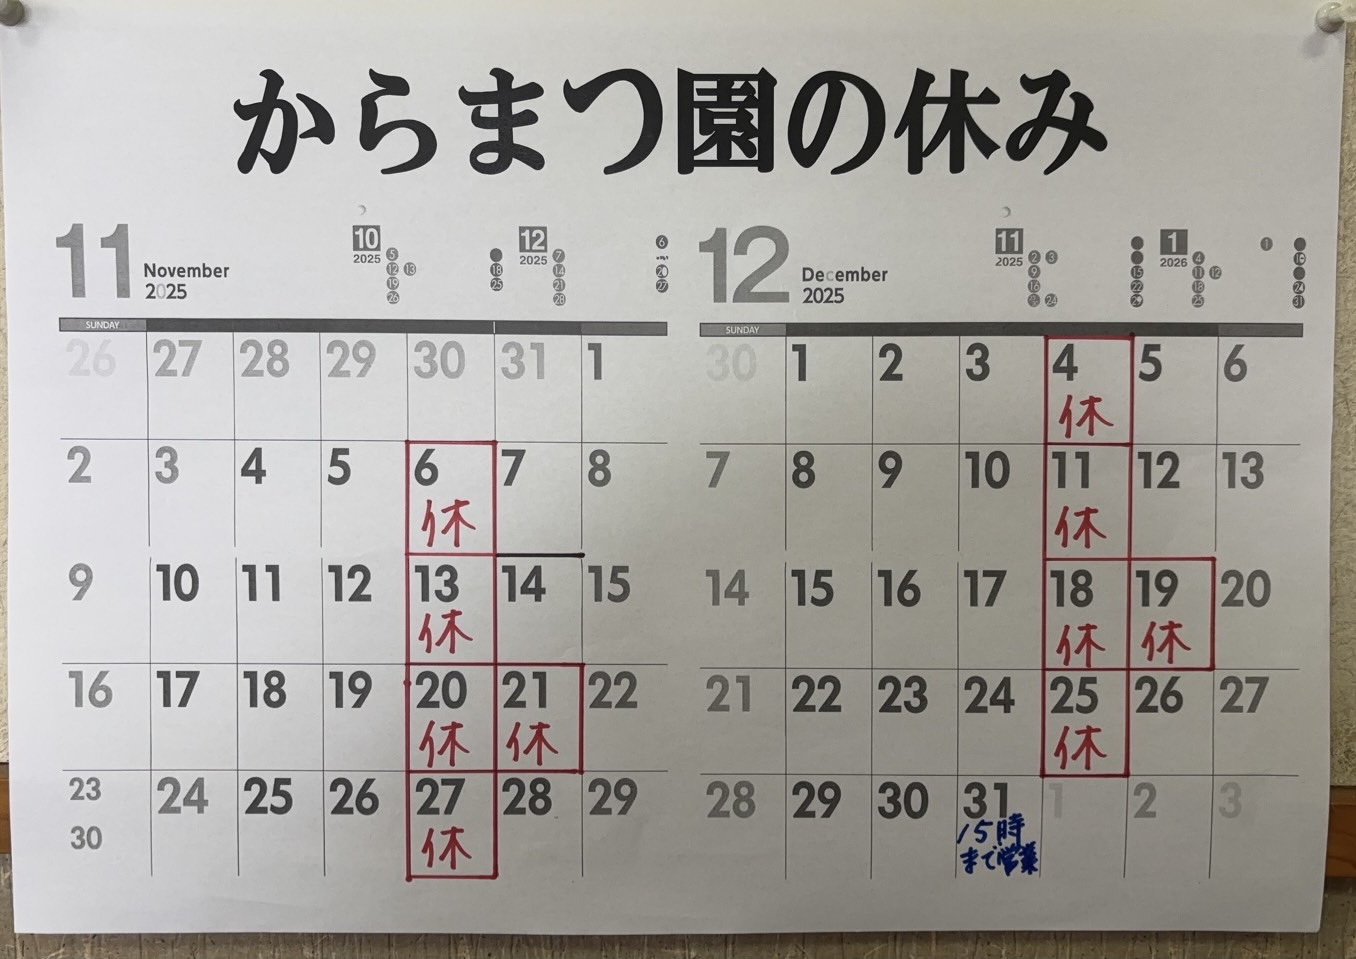 からまつ園の休み
11 November 2025
10 2025
5
12 13
19
26
18
25
12 2025
7
14
21
28
6
20
27
SUNDAY
26 27 28 29 30 31 1
2 3 4 5 6 7 8
休
9 10 11 12 13 14 15
休
16 17 18 19 20 21 22
休 休
23 24 25 26 27 28 29
30
休
12 December 2025
11 2025
2 3
9
16
24
15
22
1 2026
4
11 12
18
25
1
24
31
SUNDAY
30 1 2 3 4 5 6
休
7 8 9 10 11 12 13
休
14 15 16 17 18 19 20
休 休
21 22 23 24 25 26 27
休
28 29 30 31 1 2 3
15時
まで営業